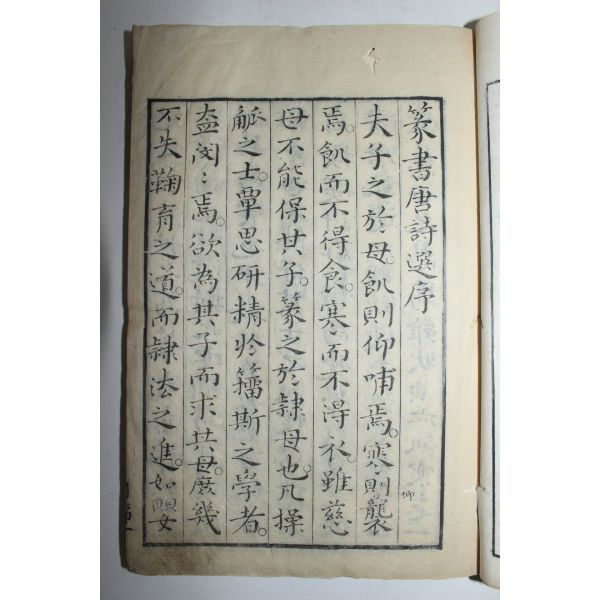 篆書唐詩選序
夫子之於母。飢則仰哺焉。寒則襲
焉。飢而不得食。寒而不得衣。雖慈
母不能保其子。篆之於隷母也。凡操
觚之士。覃思研精於籀斯之學者。
盍閔〻焉。欲為其子而求其母。庶幾
不失鞠育之道。而隷法之進。如